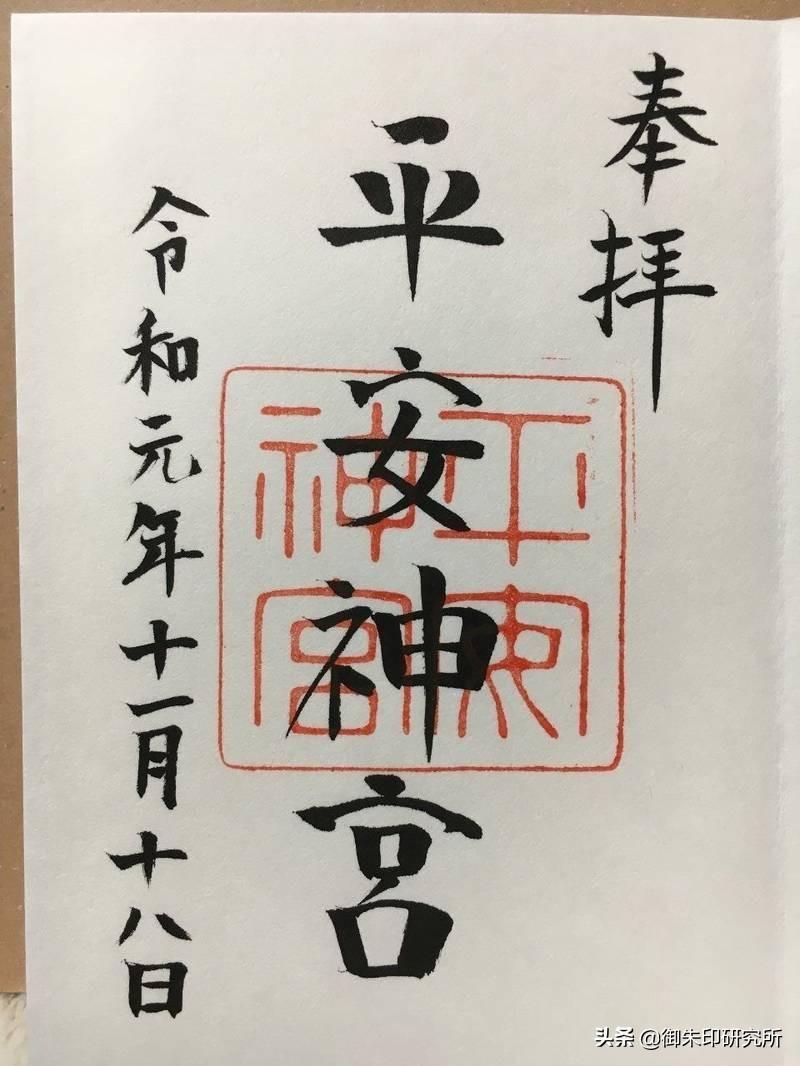 奉拝
平安神宮
平安神宮
令和元年十一月十八日
头条 @御朱印研究所